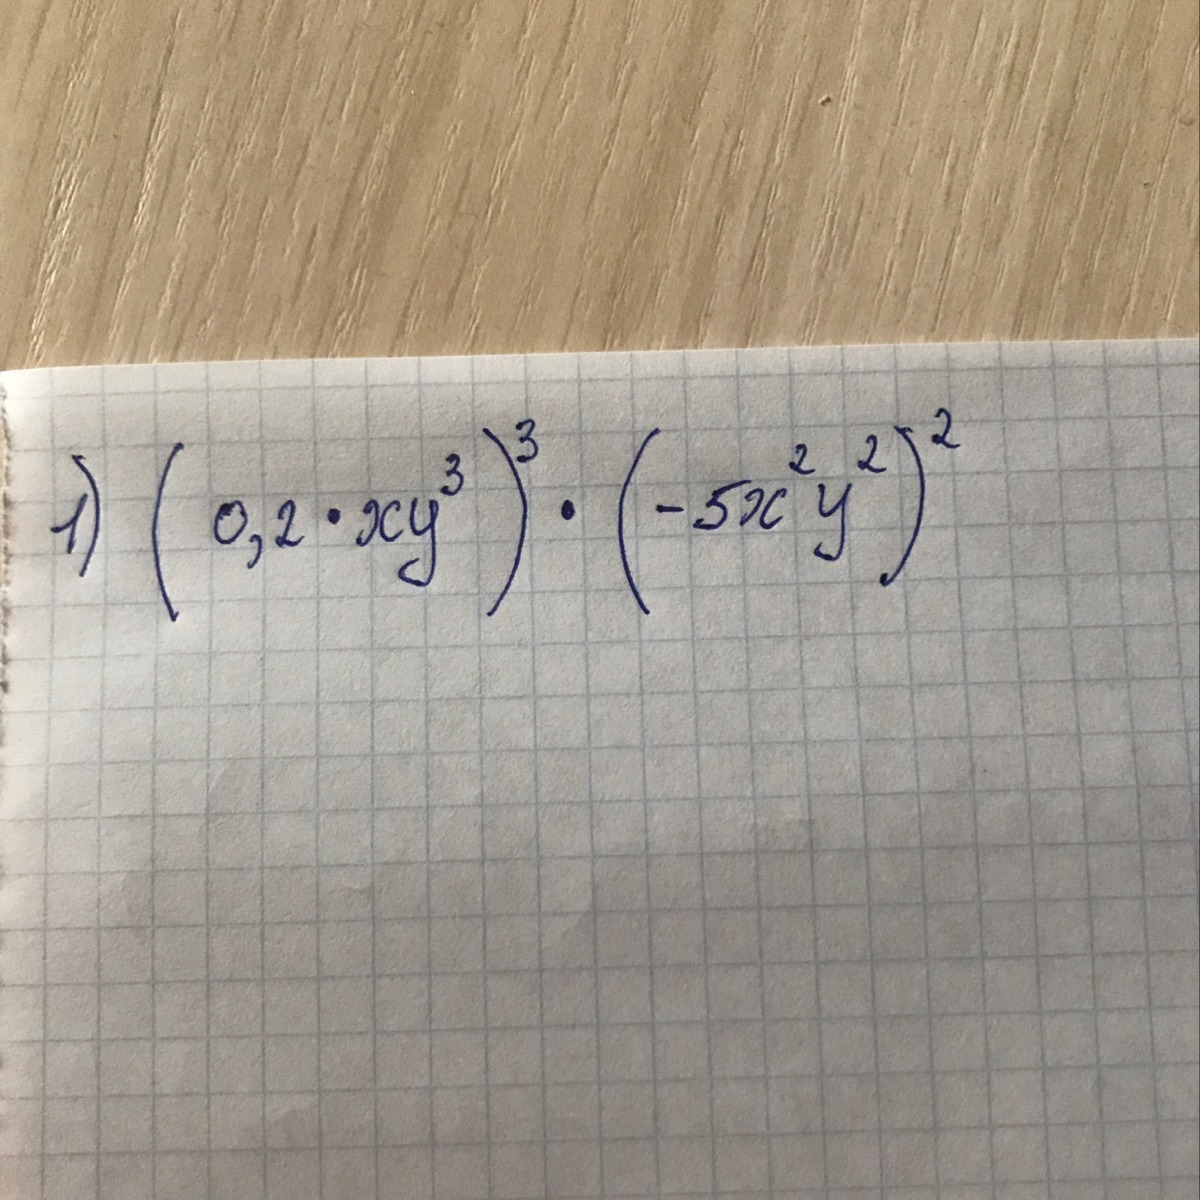 1) (0,2 · xy³)³ · (-5x²y²)²